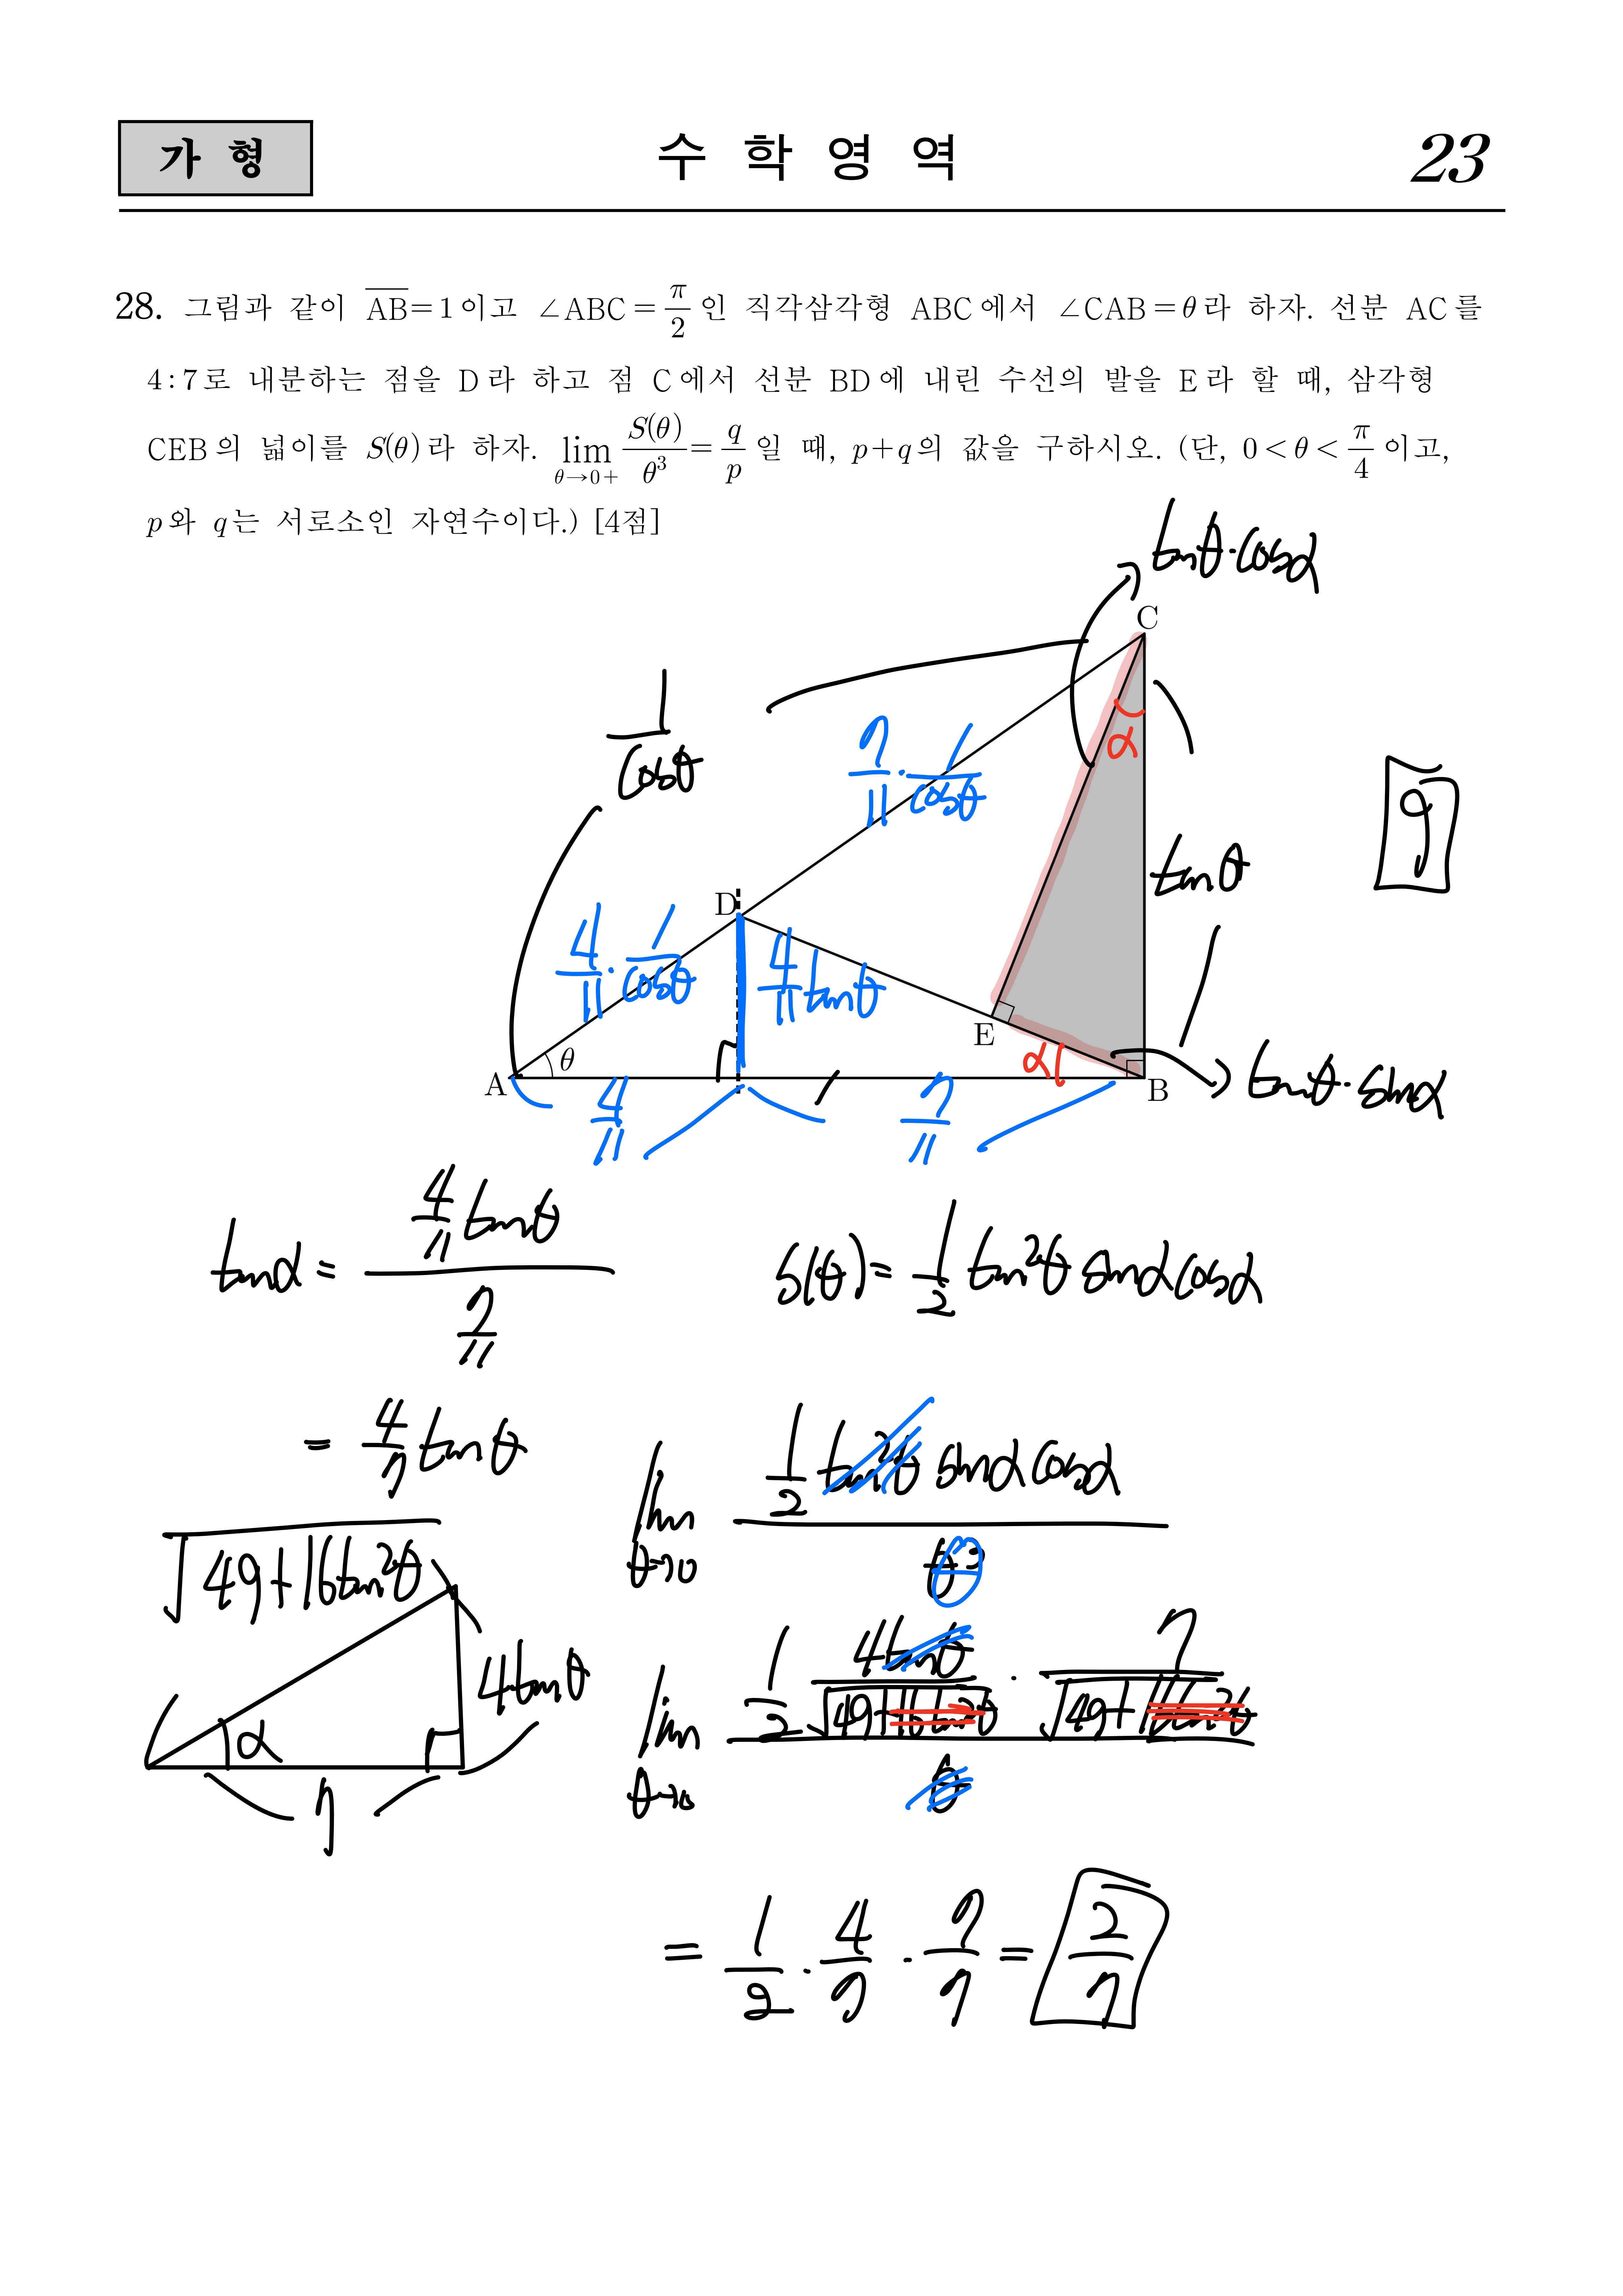 가 형
수 학 영 역
23
28. 그림과 같이 AB=1이고 ∠ABC=π/2인 직각삼각형 ABC에서 ∠CAB=θ라 하자. 선분 AC를
4:7로 내분하는 점을 D라 하고 점 C에서 선분 BD에 내린 수선의 발을 E라 할 때, 삼각형
CEB의 넓이를 S(θ)라 하자. lim θ→0+ S(θ)/θ³ = q/p일 때, p+q의 값을 구하시오. (단, 0<θ<π/4이고,
p와 q는 서로소인 자연수이다.) [4점]
tanθ·cosα
C
1/cosθ
7/11·1/cosθ
α
9
tanθ
D
4/11·1/cosθ
4/11 tanθ
E
A
θ
α
B
tanθ·sinα
4/11
7/11
tanα = (4/11 tanθ)/(7/11)
S(θ)= 1/2 tan²θ sinα cosα
= 4/7 tanθ
lim θ→0 (1/2 tan²θ sinα cosα)/θ³
√(49+16tan²θ)
4tanθ
α
7
lim θ→0 (1/2 4tanθ/√(49+16tan²θ) · 7/√(49+16tan²θ))/θ
= 1/2 · 4/7 · 7/7 = 2/7